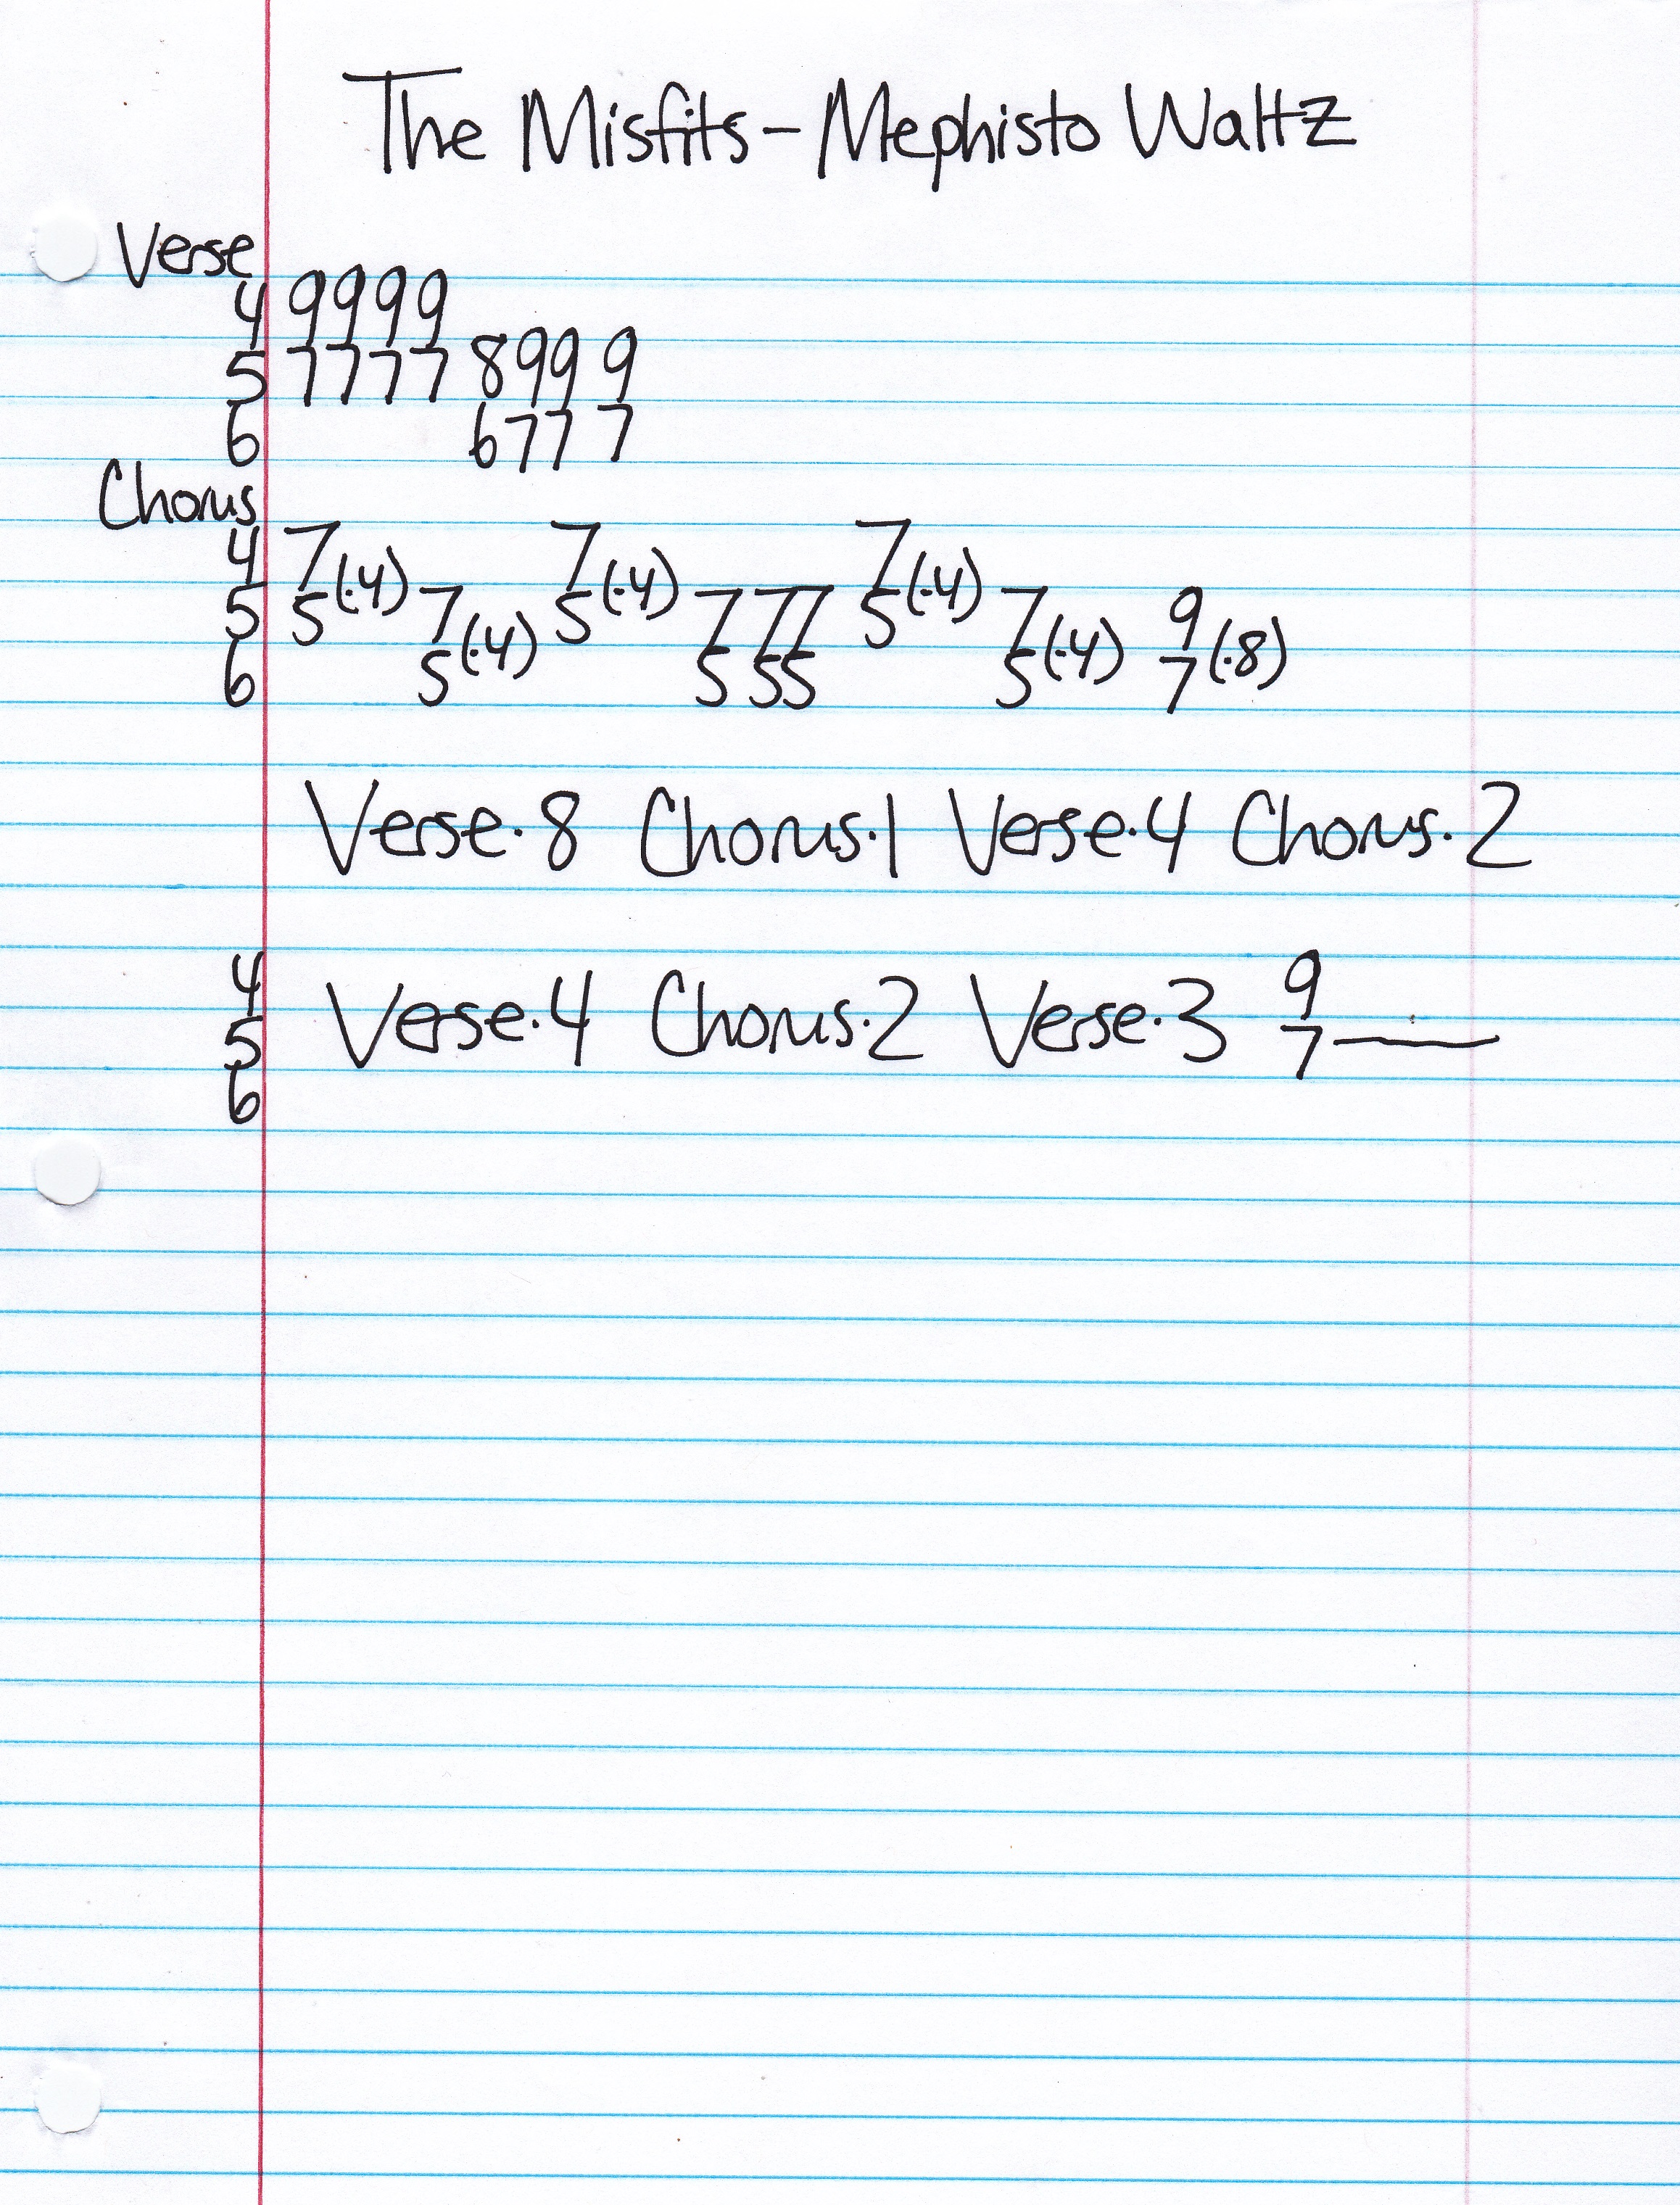 The Misfits - Mephisto Waltz
Verse
4 9999
5 7777 899 9
6 677 7
Chorus
4 7 7 7
5 5(·4) 7 5(·4) 7 77 5(·4) 7 9
6 5(·4) 5 55 5(·4) 7(·8)
Verse·8 Chorus·1 Verse·4 Chorus·2
4 9
5 Verse·4 Chorus·2 Verse·3 7—
6